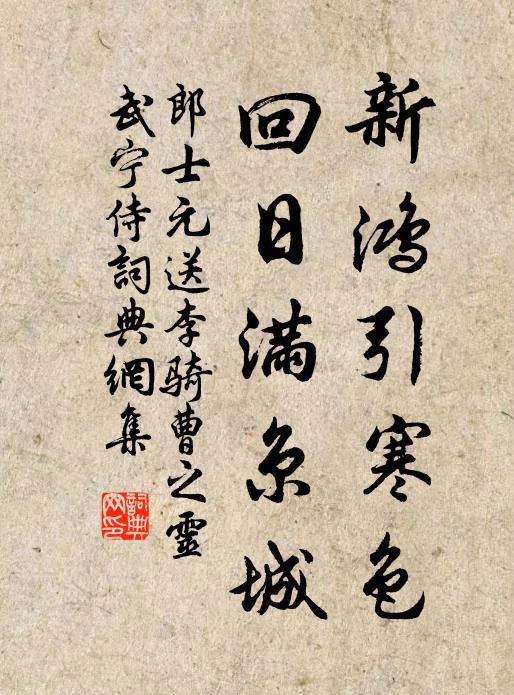 新鸿引寒色
回日满京城
郎士元送李骑曹之靈
武宁侍詞典網集
詞典網印